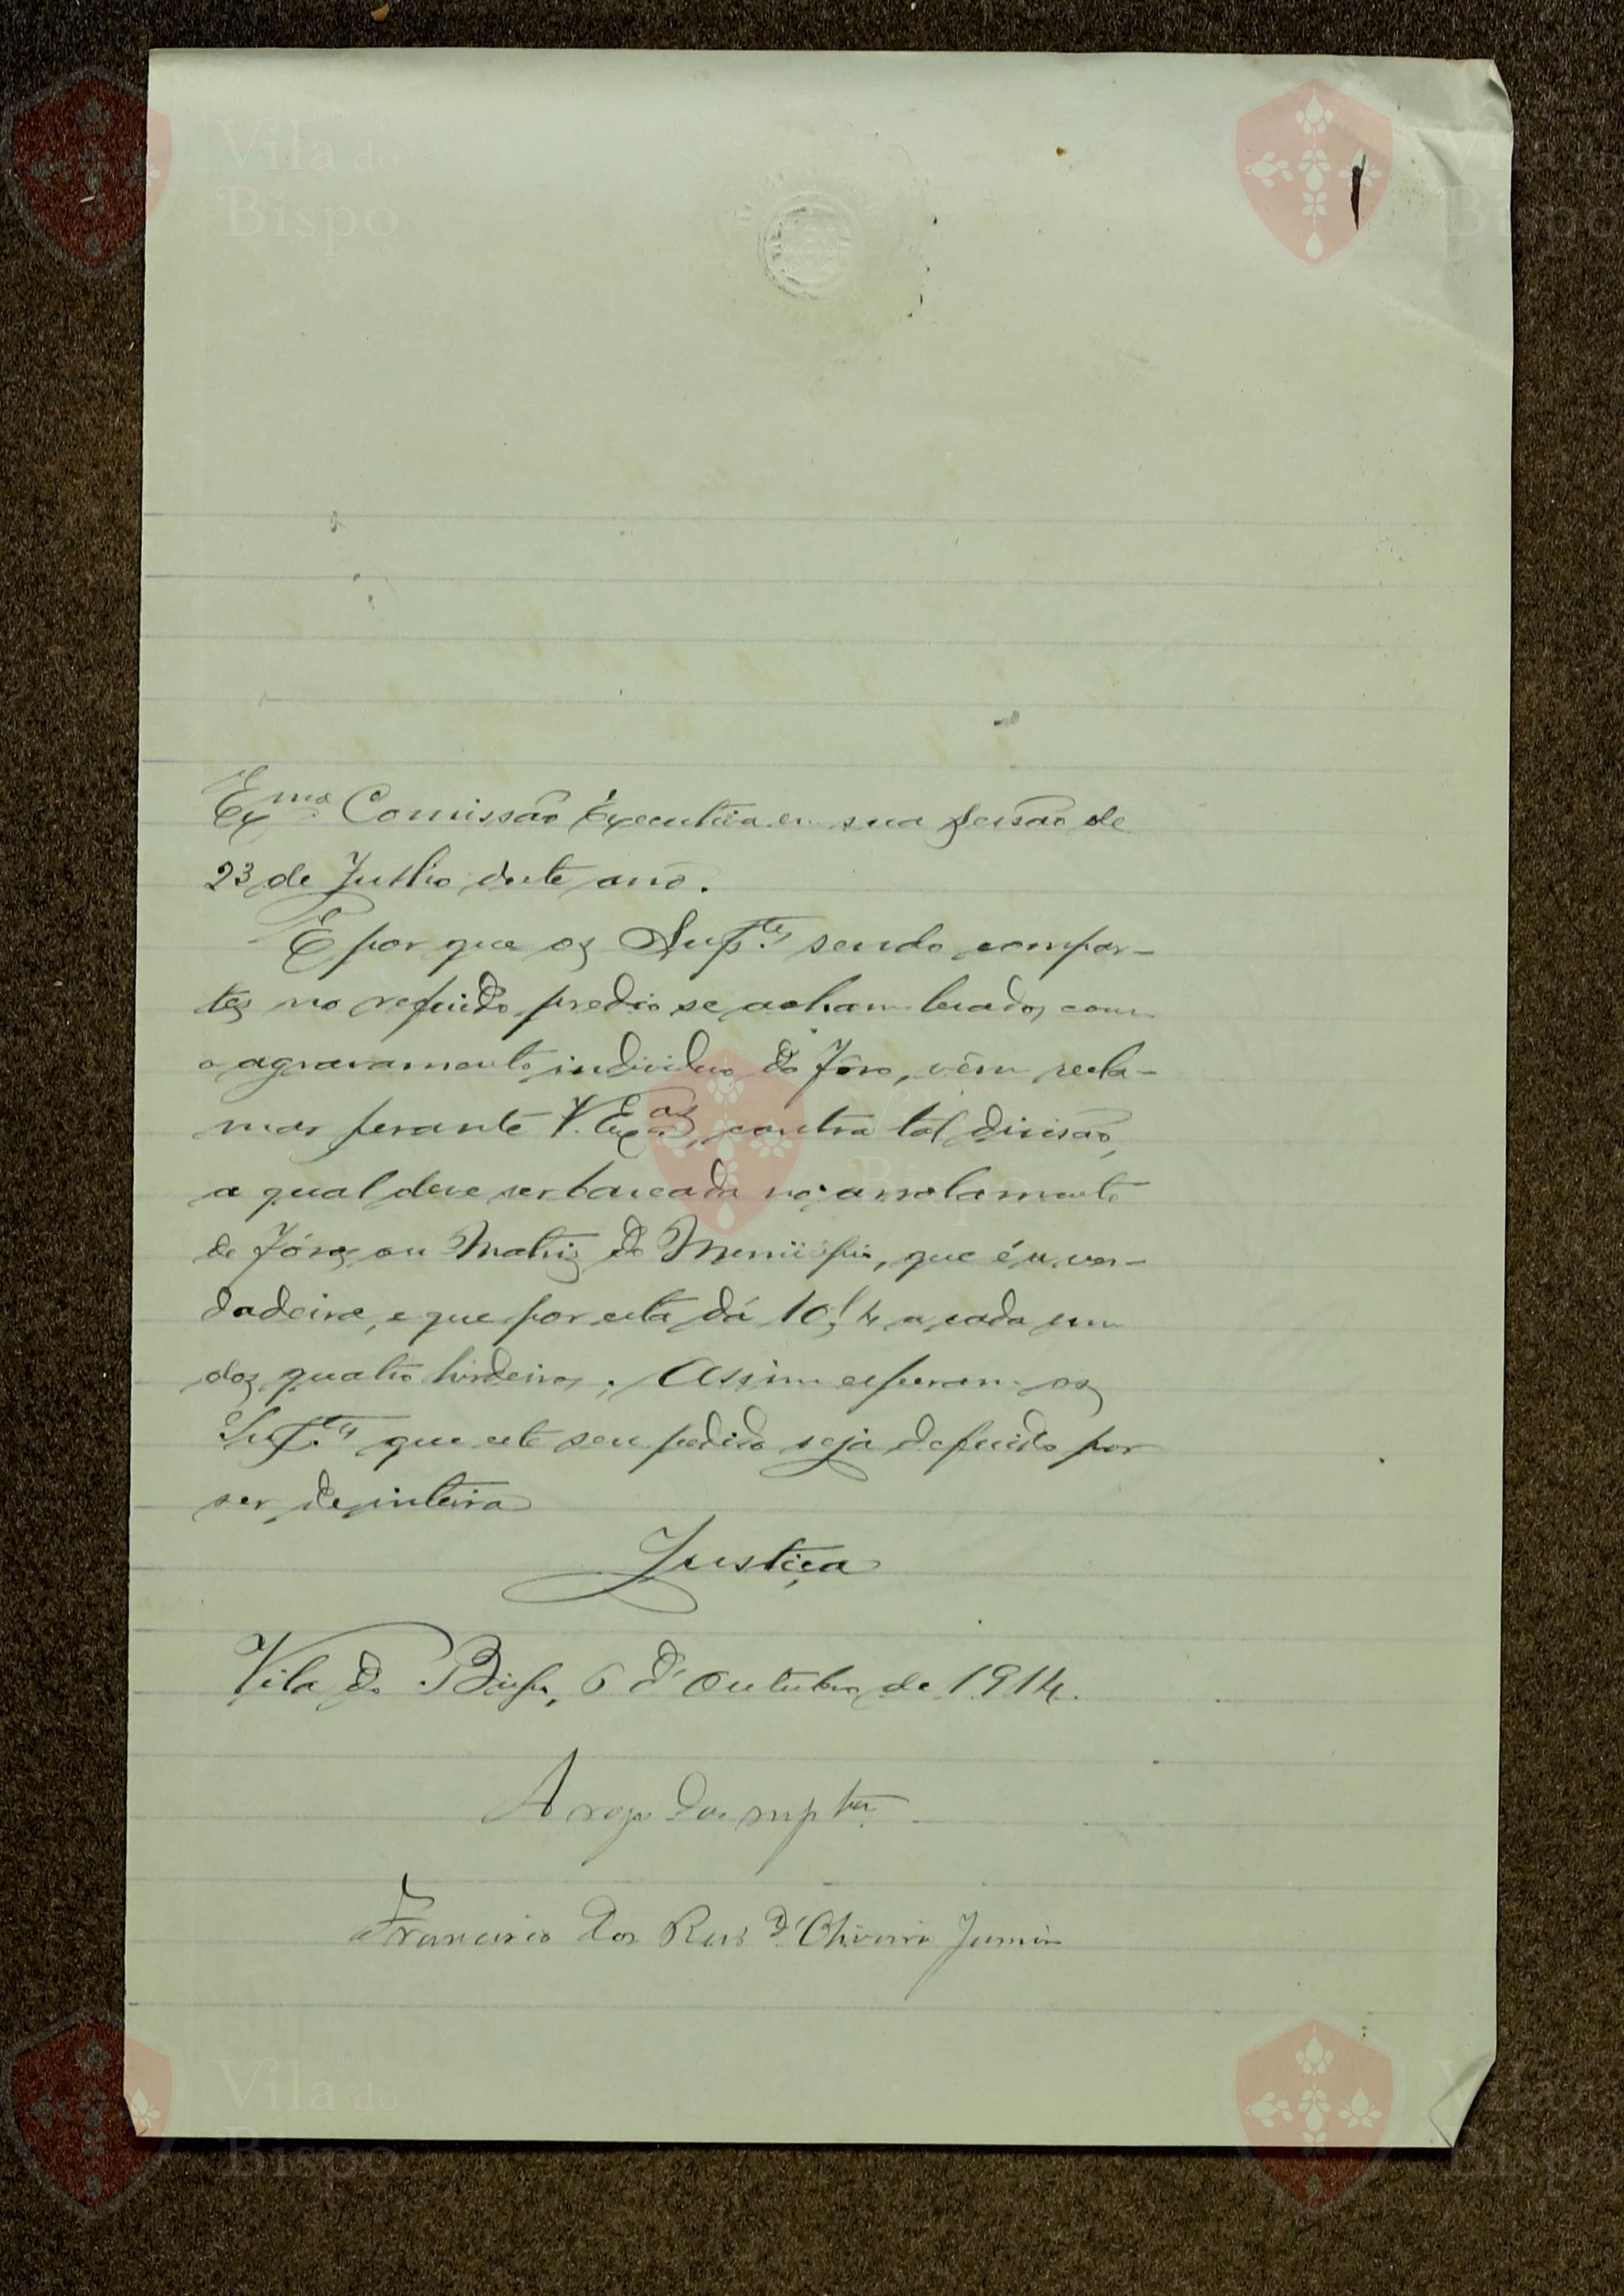 Exma Comissão Executiva em sua sessão de
23 de Julho deste ano.
E por que os Suptes sendo compar-
tes no referido predio se acham lesados com
o agravamento individuo do fôro, vêm recla-
mar perante V. Exas, contra tal divisão,
a qual deve ser baseada no arrolamento
de fóros ou Matriz do Municipio, que é a ver-
dadeira, e que por esta dá 10,4 a cada um
dos quatro herdeiros; Assim esperam os
Sup.tes que este seu pedido seja deferido por
ser de inteira
Justiça
Vila do Bispo, 6 d'Outubro de 1914.
A rogo dos suptes
Francisco dos Reis d'Oliveira Junior
Vila do
Bispo
Vila do
Bispo